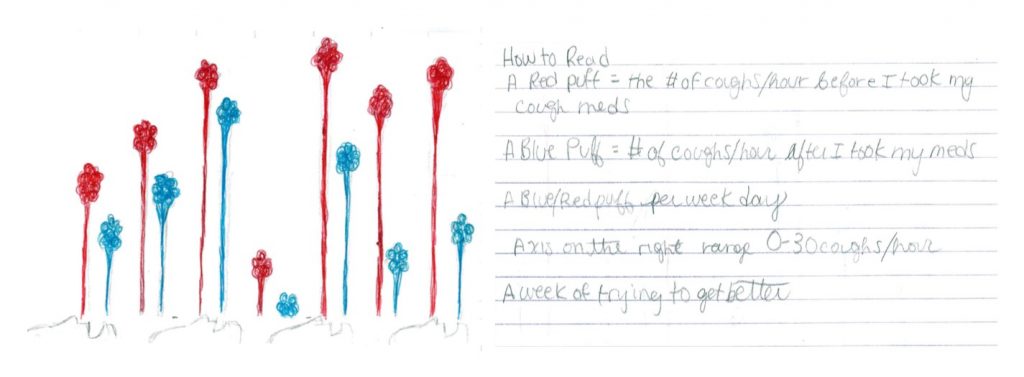 How to Read
A Red puff = the # of coughs/hour before I took my
cough meds
A Blue Puff = # of coughs/hour after I took my meds
A Blue/Red puff per week day
Axis on the right range 0-30 coughs/hour
A week of trying to get better